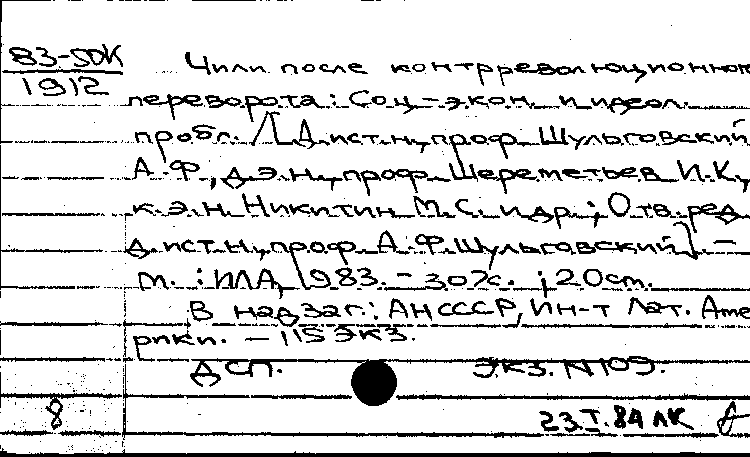 83-5ДК
1912
Чили после контрреволюционного
переворота: Соц.-экон. и идеол.
пробл. / [Д.ист.н., проф. Шульговский
А.Ф., д.э.н., проф. Шереметьев И.К.,
к.э.н. Никитин М.С. и др.; Отв. ред.
д.ист.н., проф. А.Ф. Шульговский]. –
М.: ИЛА, 1983. – 307с.; 20 см.
В надзаг.: АН СССР, Ин-т Лат. Аме
рики. – 115 экз.
ДСП. Экз. N 109.
8
23.I.84 ЛК